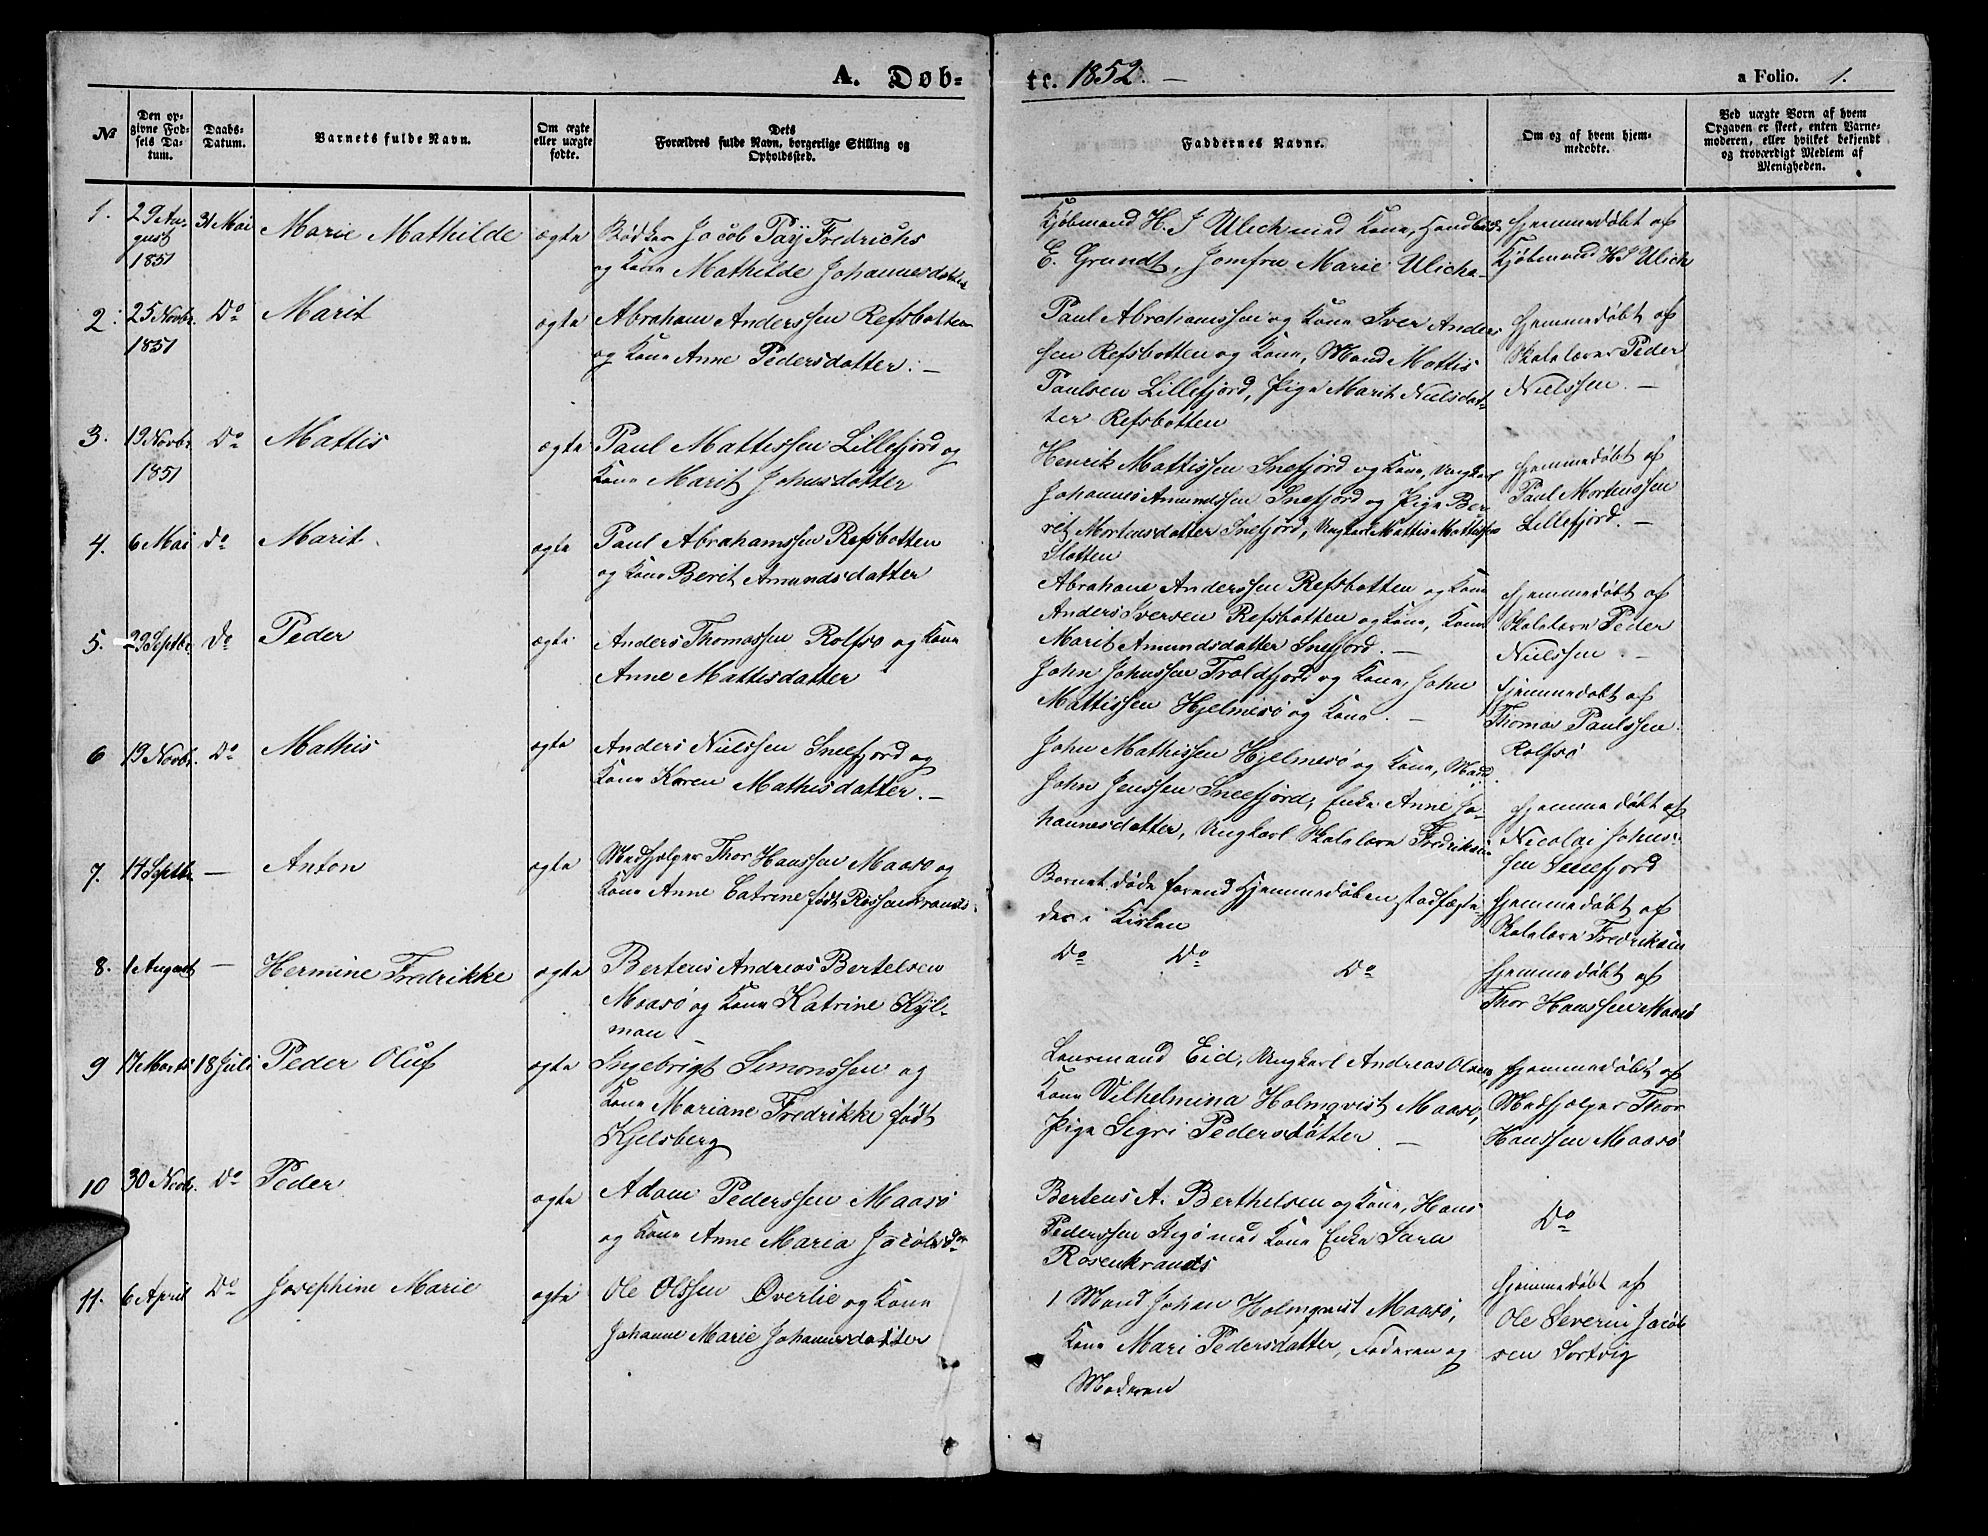 A. Døb-
te. 1852. —
a Folio. 1.
No
Den op-
givne Fød-
sels Da-
tum.
Daabs-
Datum.
Barnets fulde Navn.
Om ægte
eller uægte
fødte.
Dets
Forældres fulde Navn, borgerlige Stilling og
Opholdssted.
Faddernes Navne.
Om og af hvem hjem-
medøbte.
Ved uægte Børn af hvem
Opgaven er skeet, enten Barne-
moderen, eller hvilket bekjendt
og troværdigt Medlem af
Menigheden.
1.
29 Au-
gust
1851
31 Mai
Marie Mathilde
ægte
Bødker Jacob Pay Fredrichs
og Kone Mathilde Johannesdatter
Kjøbmand H. J Ulich med Kone,
E. Grundt, Jomfru Marie Ulich
Hjemmedøbt af
Kjøbmand H J Ulich
2.
25 Novbr.
1851
Do
Marit
ægte
Abraham Anderssen Refsbotten
og Kone Anne Pedersdatter. —
Paul Abrahamssen og Kone Iver Anders
sen Refsbotten og Kone, Mand Mattis
Paulsen Lillefjord, Pige Marit Nielsdat-
ter Refsbotten
Hjemmedøbt af
Skolelærer Peder
Nielssen. —
3.
19 Novbr.
1851
Do
Mattis
ægte
Paul Mattissen Lillefjord og
Kone Marit Johnsdatter
Henrik Mattissen Snefjord og Kone, Ungkarl
Johannes Amundssen Snefjord og Pige Ber-
ret Mortensdatter Snefjord, Ungkarl Mattis Mathissen
Slotten
Hjemmedøbt af
Paul Mortenssen
Lillefjord. —
4.
6 Mai
do
Marit.
ægte
Paul Abrahamssen Refsbotten
og Kone Berit Amundsdatter
Abraham Anderssen Refsbotten og Kone
Anders Iversen Refsbotten og Kone, Kone
Marit Amundsdatter Snefjord. —
Hjemmedøbt af
Skolelærer Peder
Nielssen —
5.
Septbr.
Do
Peder
ægte
Anders Thomassen Rolfsø og Kone
Anne Mattisdatter
John Johnssen Troldfjord og Kone, John
Mattissen Hjelmesø og Kone. —
Hjemmedøbt af
Thomas Paulssen
Rolfsø
6
19 Novbr.
Do
Mathis
ægte
Anders Nielssen Sneefjord og
Kone Karen Mathisdatter. —
John Mathissen Hjelmesø og Kone, Mand
John Jenssen Sneefjord, Enke Anne Jo-
hannesdatter, Ungkarl Skolelærer Fredriksen
Hjemmedøbt af
Nicolai Johns-
sen Sneefjord
7.
14 Septbr.
—
Anton
ægte
Medhjælper Thor Hanssen Maasø og
Kone Anne Catrine født Rosenkrands.
Barnet døde førend Hjemmedøben stadfæste-
des i Kirken
Hjemmedøbt af
Skolelærer Fredriksen
8.
1 August
—
Hermine Fredrikke
ægte
Berteus Andreas Bertelsen
Maasø og Kone Katrine Kyl-
man —
Do Do Do
Hjemmedøbt af
Thor Hanssen Maasø
9
17 Marts
18 Juli
Peder Oluf
ægte
Ingebrigt Simonssen og
Kone Mariane Fredrikke født
Kjelsberg
Lensmand Eid, Ungkarl Andreas Olsen,
Kone Vilhelmina Holmqvist Maasø,
Pige Segri Pedersdatter —
Hjemmedøbt af
Medhjælper Thor
Hanssen Maasø
10
30 Novbr.
Do
Peder
ægte
Adam Pederssen Maasø
og Kone Anne Maria Jacobsdr
Berteus A. Berthelsen og Kone, Hans
Pederssen Ingø med Kone Enke Sara
Rosenkrands
Do
11.
6 April
Do
Josephine Marie
ægte
Ole Olssen Øverlie og Kone
Johanne Marie Johannesdatter
1 Mand Johan Holmqvist Maasø,
Kone Mari Pedersdatter, Faderen og
Moderen
Hjemmedøbt af
Ole Severin Jacob
sen Sortvig